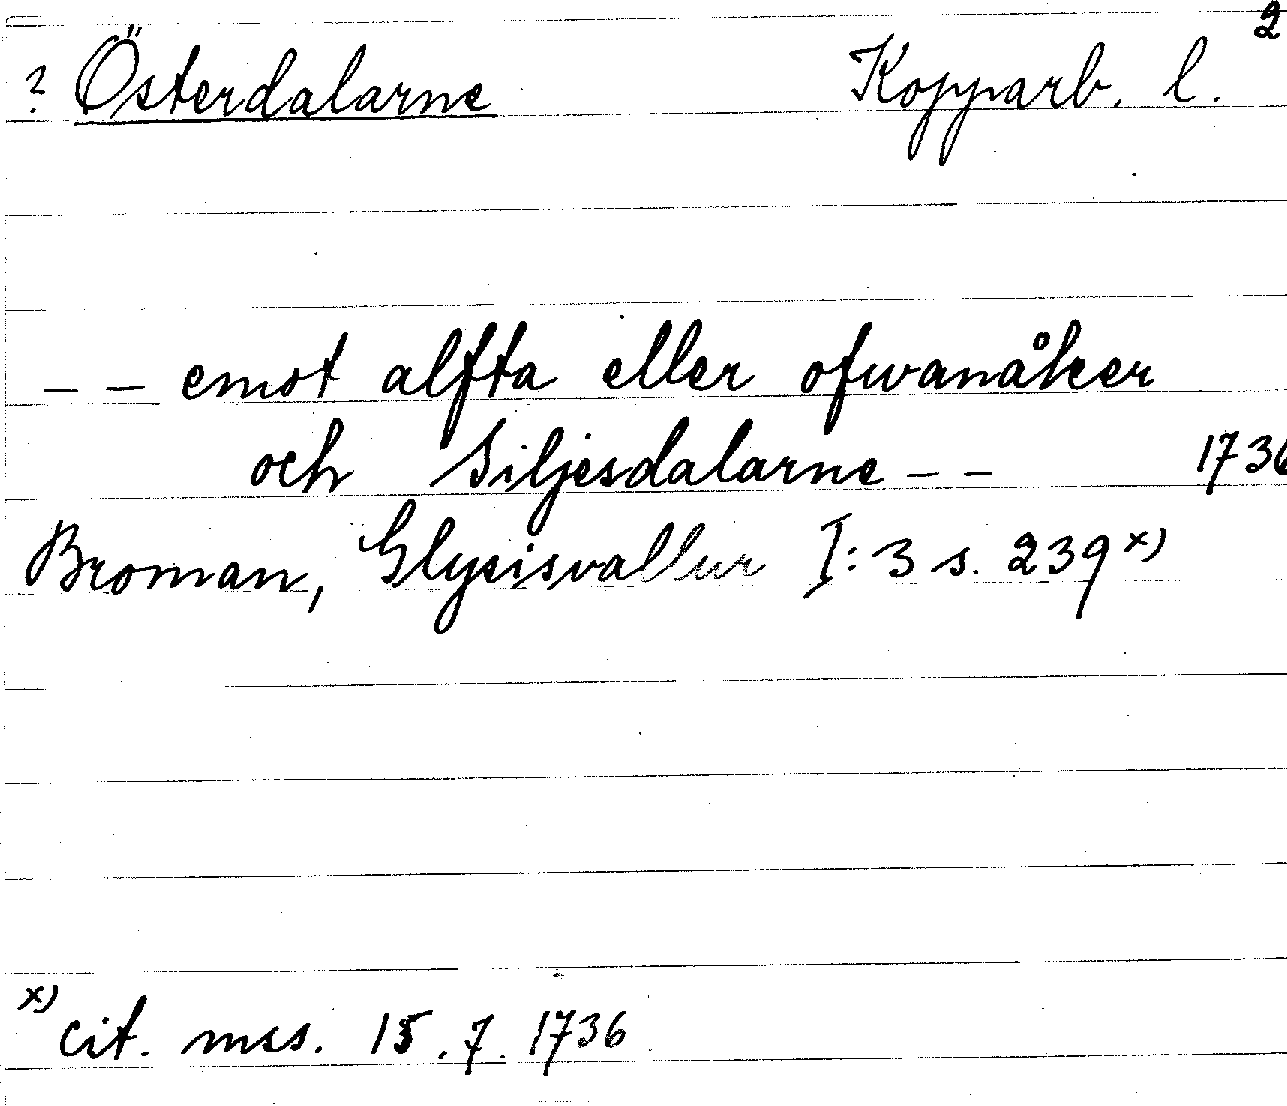 2
? Österdalarne Kopparb. l.
– – emot alfta eller ofwanåker
och Siljesdalarne – – 1736
Broman, Glysisvallur I: 3 s. 239 x)
x) cit. mss. 15.7. 1736